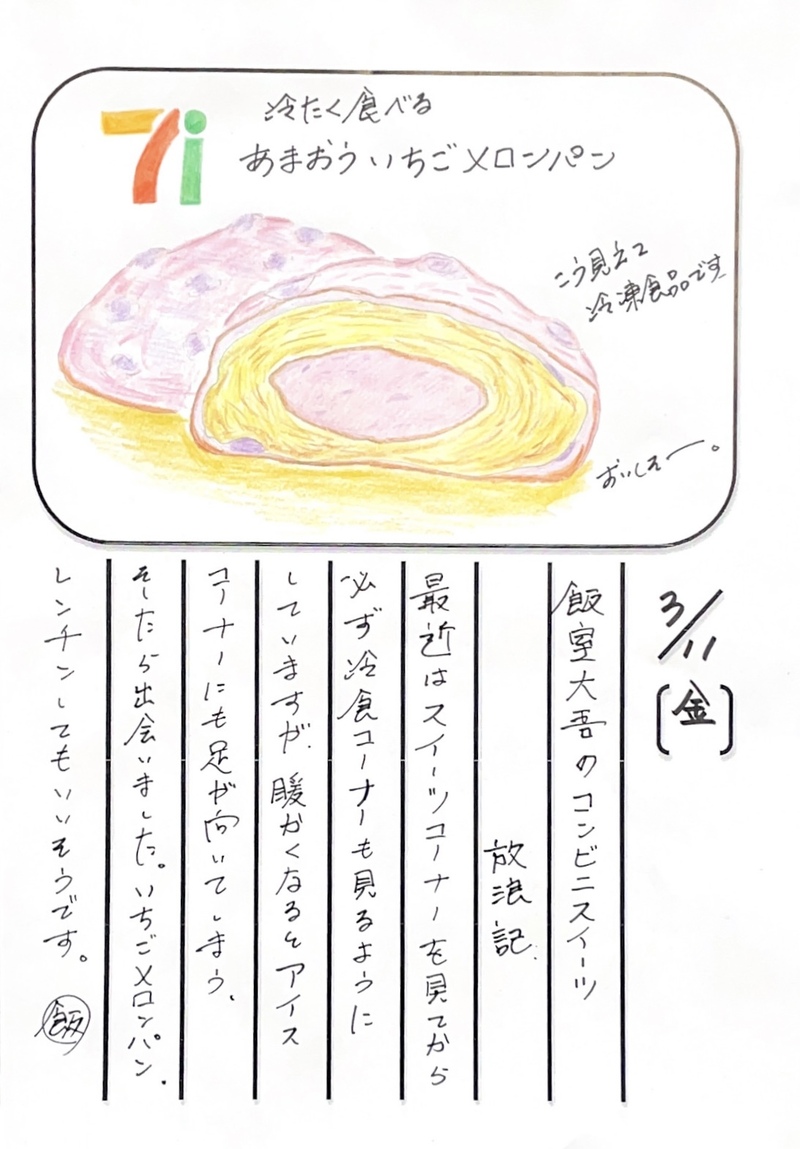 7i
冷たく食べる
あまおういちごメロンパン
こう見えて
冷凍食品です
おいしそー。
3/11
[金]
飯室大吾のコンビニスイーツ
放浪記.
最近はスイーツコーナーを見てから
必ず冷食コーナーも見るように
していますが、暖かくなるとアイス
コーナーにも足が向いてしまう、
そしたら出会いました。いちごメロンパン、
レンチンしてもいいそうです。
飯